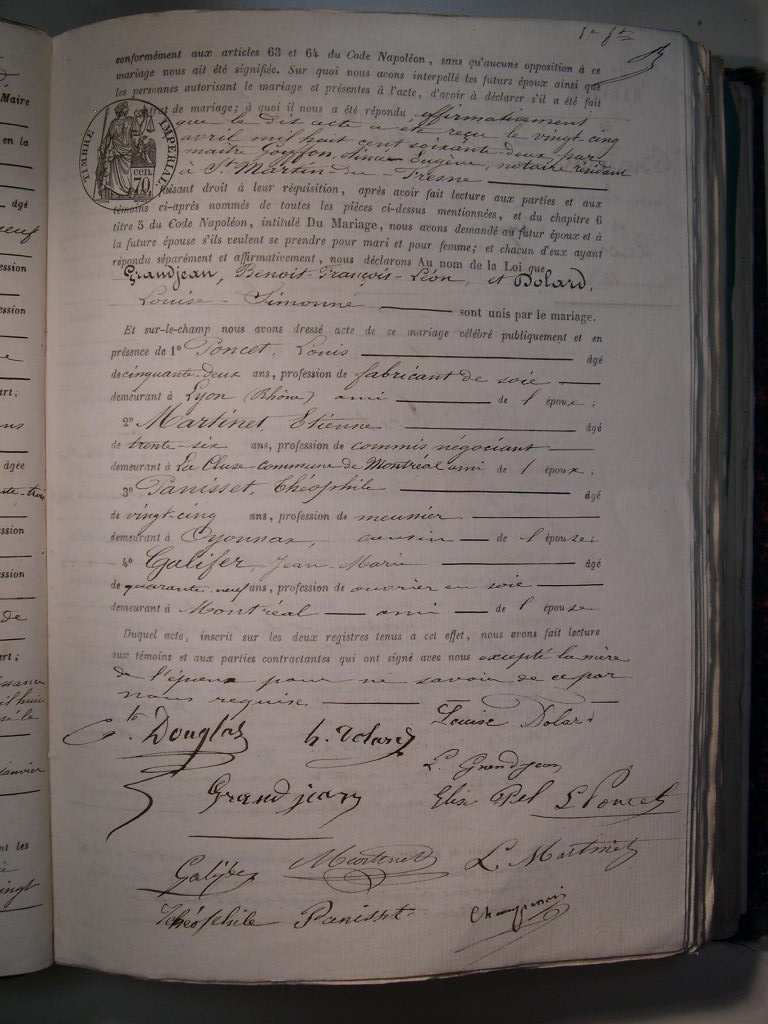 conformément aux articles 63 et 64 du Code Napoléon, sans qu'aucune opposition à ce
mariage nous ait été signifiée. Sur quoi nous avons interpellé les futurs époux ainsi que
les personnes autorisant le mariage et présentes à l'acte, d'avoir à déclarer s'il a été fait
de mariage; à quoi il nous a été répondu affirmativement
que le dit acte a été reçu le vingt cinq
avril mil huit cent soixante deux par
maître Goyffon, Eugène, notaire résidant
à St Martin du Fresne
TIMBRE IMPERIAL
CEN. 70
faisant droit à leur réquisition, après avoir fait lecture aux parties et aux
témoins ci-après nommés de toutes les pièces ci-dessus mentionnées, et du chapitre 6
titre 5 du Code Napoléon, intitulé Du Mariage, nous avons demandé au futur époux et à
la future épouse s'ils veulent se prendre pour mari et pour femme; et chacun d'eux ayant
répondu séparément et affirmativement, nous déclarons Au nom de la Loi que
Grandjean, Benoit-François-Léon, et Dolard,
Louise-Simonne sont unis par le mariage.
Et sur-le-champ nous avons dressé acte de ce mariage célébré publiquement et en
présence de 1° Poncet, Louis âgé
de cinquante-deux ans, profession de fabricant de soie
demeurant à Lyon (Rhône) ami de l'époux;
2° Martinet, Etienne âgé
de trente-six ans, profession de commis négociant
demeurant à La Cluse commune de Montréal ami de l'époux;
3° Panisset, Théophile âgé
de vingt-cinq ans, profession de meunier
demeurant à Oyonnax, cousin de l'épouse;
4° Galifer, Jean-Marie âgé
de quarante-neuf ans, profession de ouvrier en soie
demeurant à Montréal ami de l'épouse
Duquel acte, inscrit sur les deux registres tenus a cet effet, nous avons fait lecture
aux témoins et aux parties contractantes qui ont signé avec nous excepté la mère
de l'époux pour ne savoir de ce par
nous requise.
Cte Douglas h. Dolard Louise Dolard
L. Grandjean
Grandjean Elise L Poncet
Galifer Martinet L. Martinet
théophile Panisset